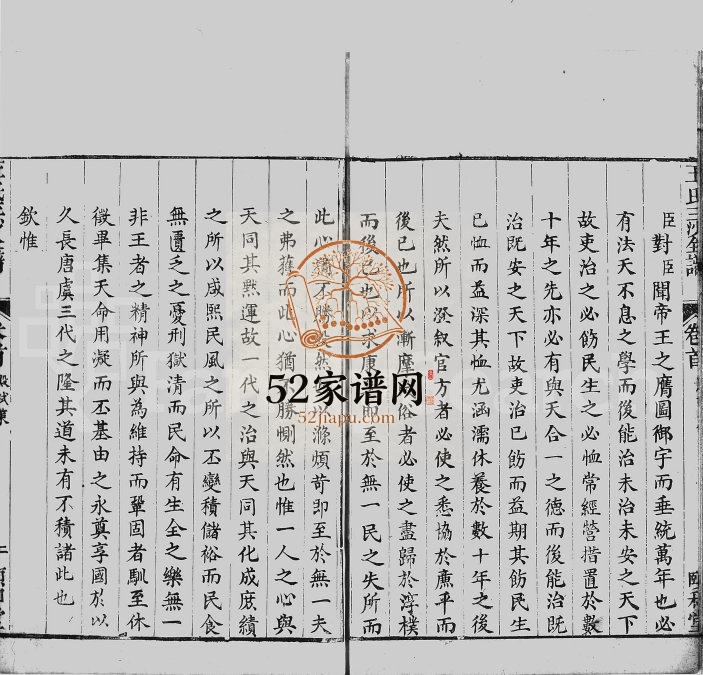 臣對臣聞帝王之膺圖御宇而垂統萬年也必
有法天不息之學而後能治未治未安之天下
故吏治之必飭民生之必恤常經營措置於數
十年之先亦必有與天合一之德而後能治既
治既安之天下故吏治已飭而益期其飭民生
已恤而益深其恤尤涵濡休養於數十年之後
夫然所以澄叙官方者必使之悉協於廉平而
後已也所以漸摩俗者必使之盡歸於淳樸
而後已也以求康即至於無一民之失所而
此心以滌煩苛即至於無一夫
之弗獲而此心猶勝惻然也惟一人之心與
天同其默運故一代之治與天同其化成庶績
之所以咸熙民風之所以丕變積儲裕而民食
無匱乏之憂刑獄清而民命有生全之樂無一
非王者之精神所與為維持而鞏固者馴至休
徵畢集天命用凝而丕基由之永奠享國於以
久長唐虞三代之隆其道未有不積諸此也
欽惟
王氏三沙全譜
卷首
殿試策
二
52家谱网
52jiapu.com